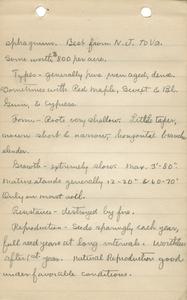 sphagnum. Best from N.J. to Va.
Some worth $800 per acre.
Types - generally pure even aged, dense.
Sometimes with Red Maple, Sweet & Bl.
Gum, & Cypress.
Form - Roots very shallow. Little taper,
crown short & narrow, horizontal branch
slender.
Growth - extremely slow. Max. 3'-80'
Mature stands generally 12-20" & 60-70'
Only on moist soil.
Resistance - destroyed by fire.
Reproduction - Seeds sparingly each year,
full seed years at long intervals. Worthless
after 1st year. natural Reproduction good
under favorable conditions.